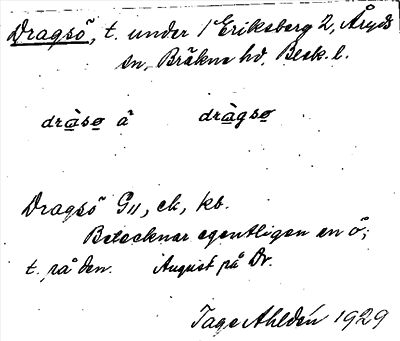 Dragsö, t. under 1 Eriksberg 2, Åryds
sn, Bräkne hd, Blek. l.
dràso å dràgsø
Dragsö G11, ek, kb.
Betecknar egentligen en ö;
t. på den. August på Dr.
Tage Ahldén 1929